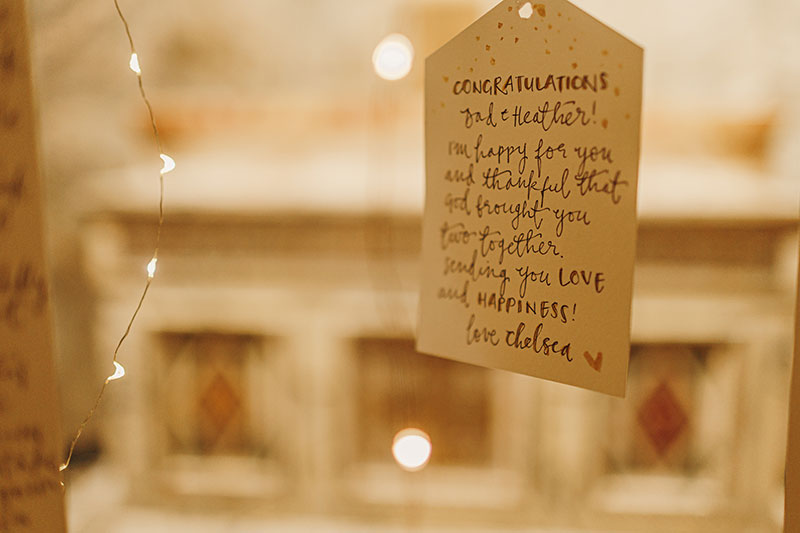 CONGRATULATIONS
Jad & Heather!
I'm happy for you
and thankful that
God brought you
two together.
Sending you LOVE
and HAPPINESS!
love chelsea